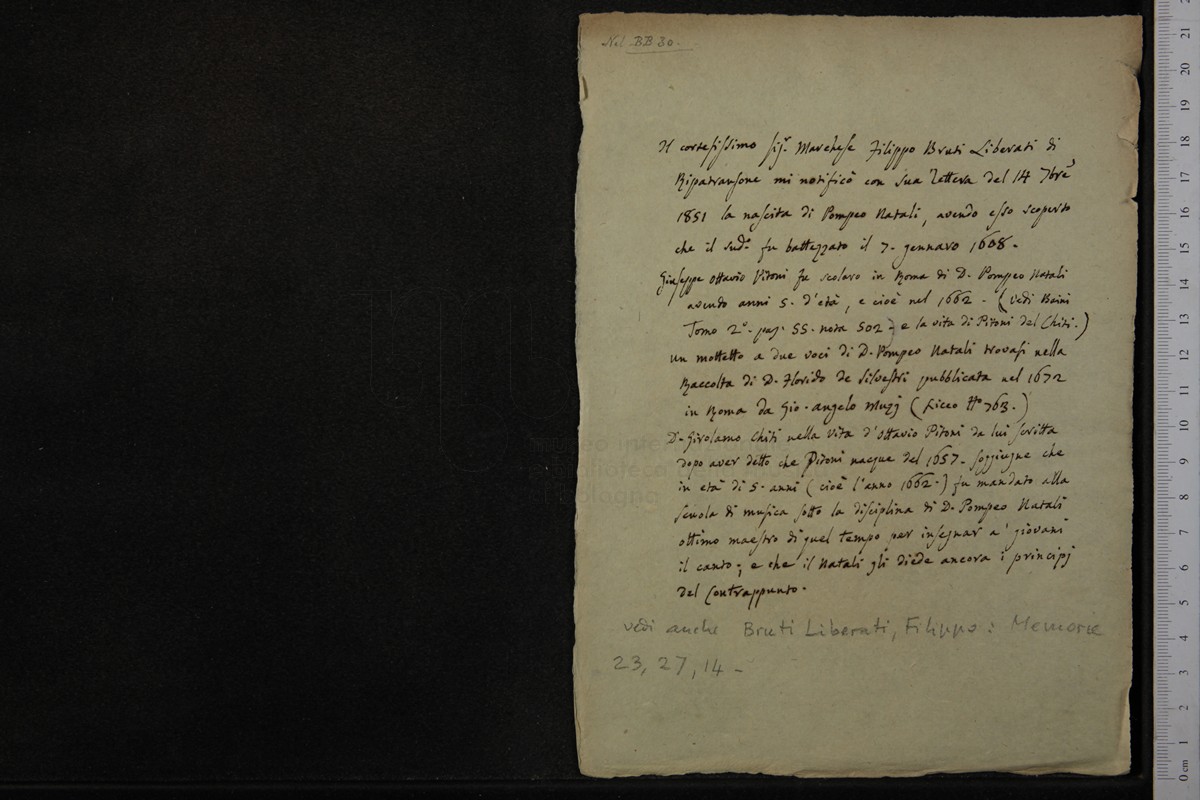 Nel BB 30.
Il cortesissimo Sig.r Marchese Filippo Bruti Liberati di
Ripatransone mi notificò con sua lettera del 14 7bre
1851 la nascita di Pompeo Natali, avendo esso scoperto
che il sud.o fu battezzato il 7. gennaro 1608.
Giuseppe Ottavio Pitoni fu scolaro in Roma di D. Pompeo Natali
avendo anni 5. d'età, e cioè nel 1662. (vedi Baini
Tomo 2.o pag. 55. nota 502.) e la vita di Pitoni del Chiti.)
un mottetto a due voci di D. Pompeo Natali trovasi nella
Raccolta di D. Florido de Silvestri pubblicata nel 1672
in Roma da Gio. angelo Muzj (Liceo No 763.)
D. Girolamo Chiti nella vita d'Ottavio Pitoni da lui scritta
dopo aver detto che Pitoni nacque del 1657. soggiugne che
in età di 5. anni (cioè l'anno 1662.) fu mandato alla
scuola di musica sotto la disciplina di D. Pompeo Natali
ottimo maestro di quel tempo per insegnar a' giovani
il canto; e che il Natali gli diede ancora i principj
del Contrappunto.
vedi anche Bruti Liberati, Filippo: Memorie
23, 27, 14 -
museo inte
biblioteca
bologna
0 cm 1 2 3 4 5 6 7 8 9 10 11 12 13 14 15 16 17 18 19 20 21